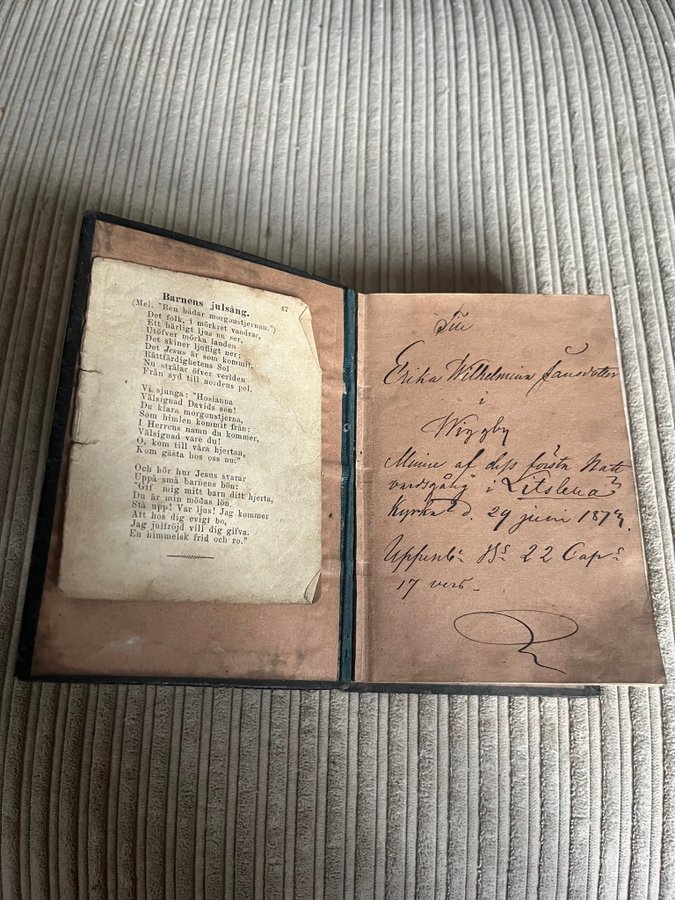 Barnens julsång. 47
(Mel. "Ren bådar morgonstjernan.")
Det folk, i mörkret vandrar,
Ett härligt ljus nu ser,
Utöfver mörka landen
Det skiner ljufligt ner;
Det Jesus är som kommit,
Rättfärdighetens Sol
Nu strålar öfver verlden
Från syd till nordens pol.
Vi sjunga: "Hosianna
Välsignad Davids son!
Du klara morgonstjerna,
Som himlen kommit från;
I Herrens namn du kommer,
Välsignad vare du!
O, kom till våra hjertan,
Kom gästa hos oss nu!"
Och hör hur Jesus svarar
Uppå små barnens bön:
"Gif mig mitt barn ditt hjerta,
Du är min mödas lön.
Stå upp! Var ljus! Jag kommer
Att hos dig evigt bo,
Jag julfröjd vill dig gifva.
En himmelsk frid och ro."
Till
Erika Wilhelmina Jansdoter
i
Wiggby
Minne af dess första Natt
vardsgång i Litslena
Kyrka d. 29 juni 187
Uppenb: Bs 22 Cap:
17 vers